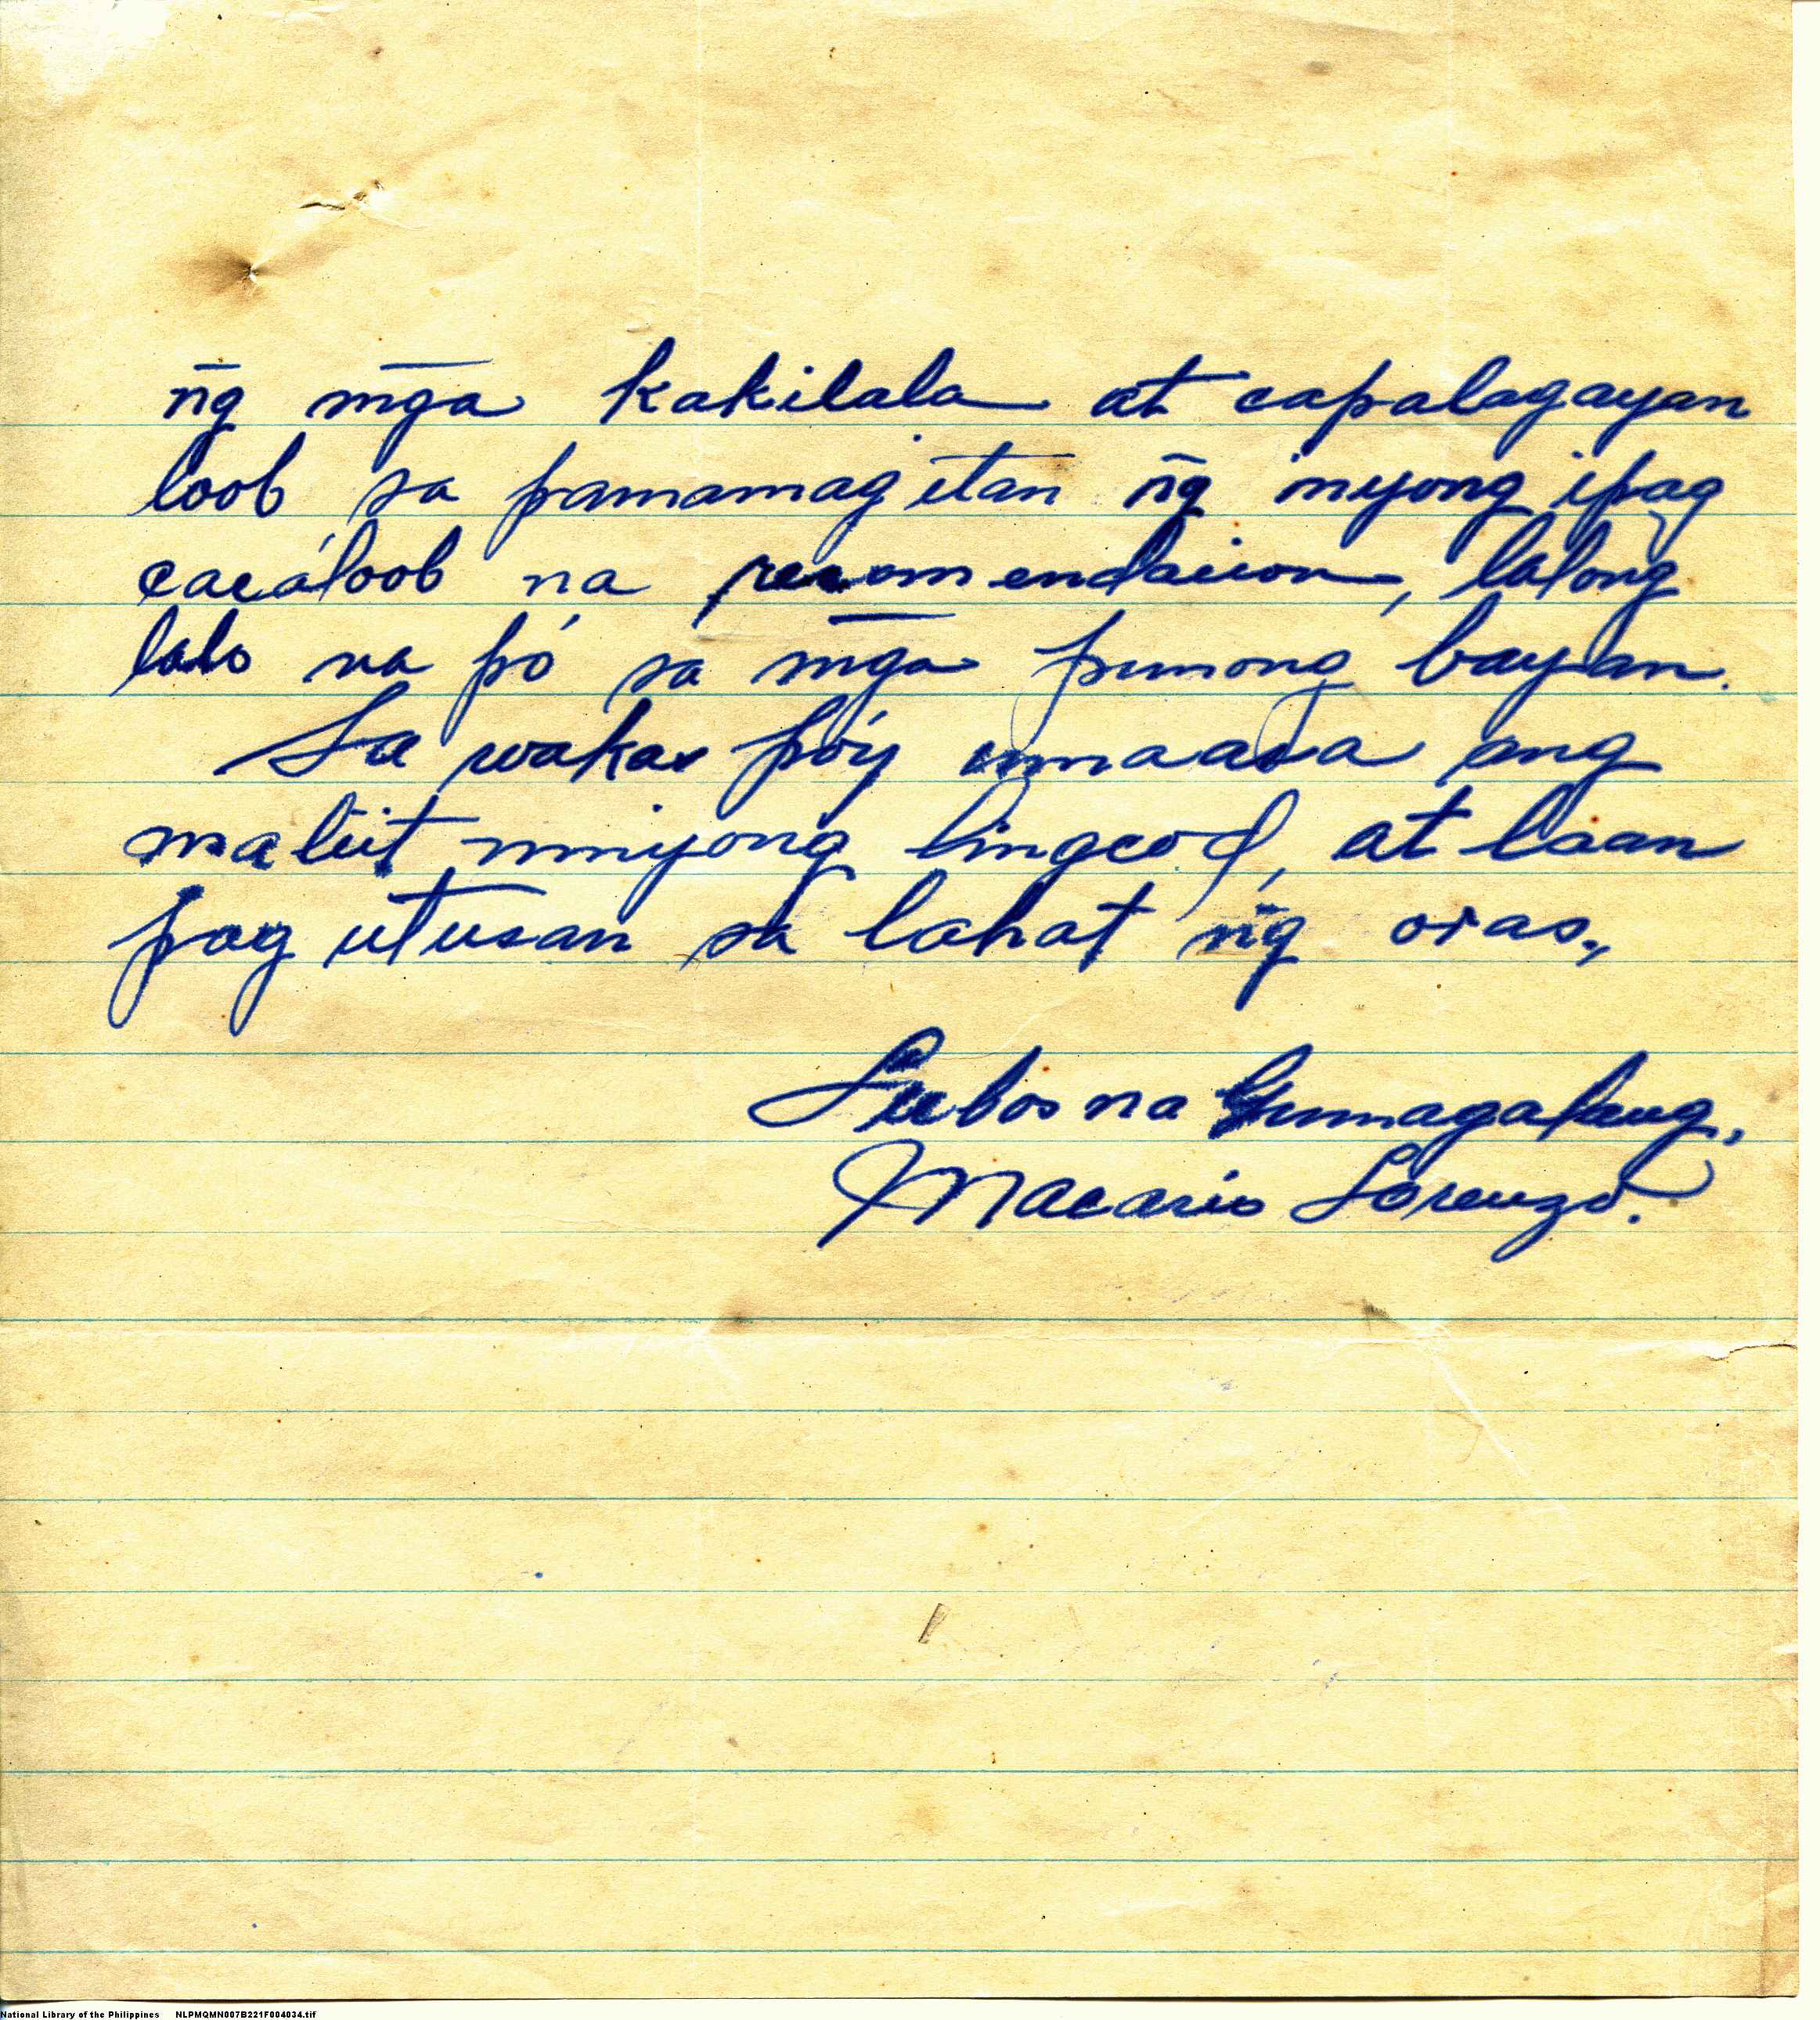 n̄g m̄ga kakilala at capalagayan
loob sa pamamag itan n̄g inyong ipag
cacáloob na recomendacion, lalong
lalo na pó sa m̄ga punong bayan.
Sa wakas póy umaasa ang
maliit ninyong lingcod, at laan
pag utusan sa lahat n̄g oras.,
Lubos na Gumagalang,
Macario Lorenzo.
National Library of the Philippines NLPMQMN007B221F004034.tif